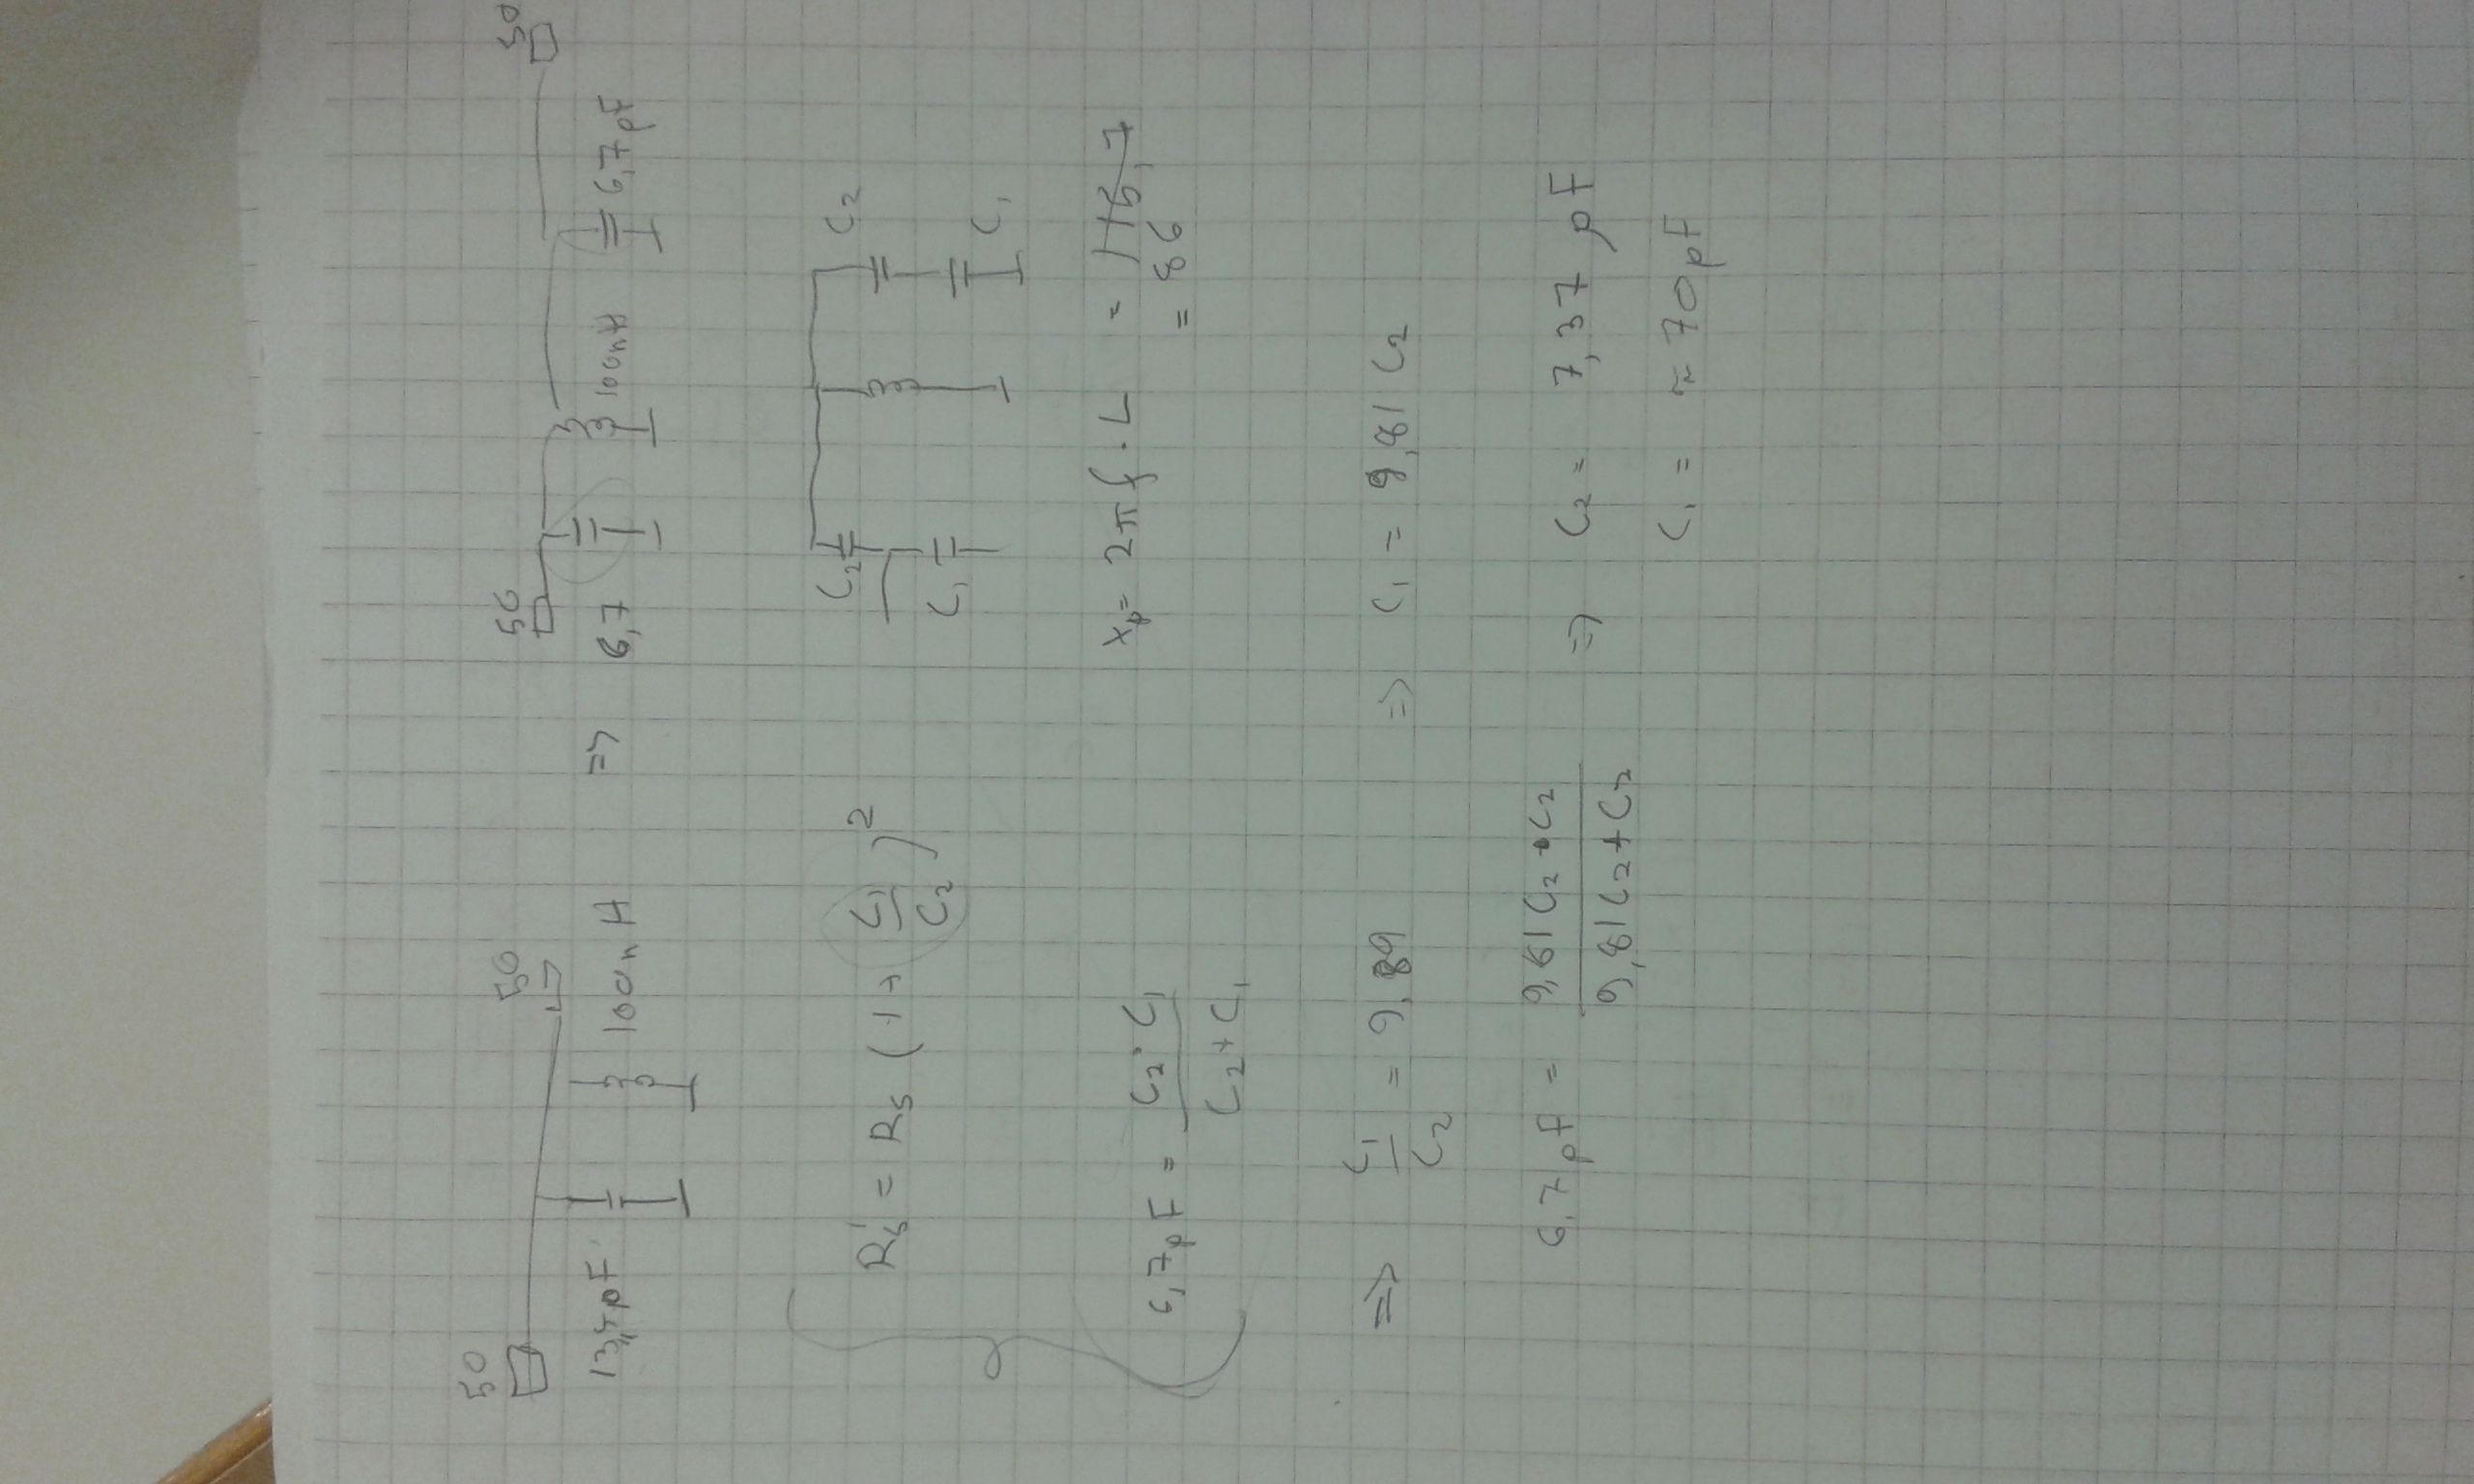 50
50
13,4pF
100nH
=>
50
50
6,7
100nH
6,7pF
Rs' = Rs (1+ C1/C2)^2
C2
C1
C2
C1
6,7pF = C2·C1/C2+C1
Xp= 2πf·L
= 86
=> C1/C2 = 9,89
=> C1 = 9,81 C2
6,7pF = 9,81C2·C2/9,81C2+C2
=> C2 = 7,37 pF
C1 = ≈70pF